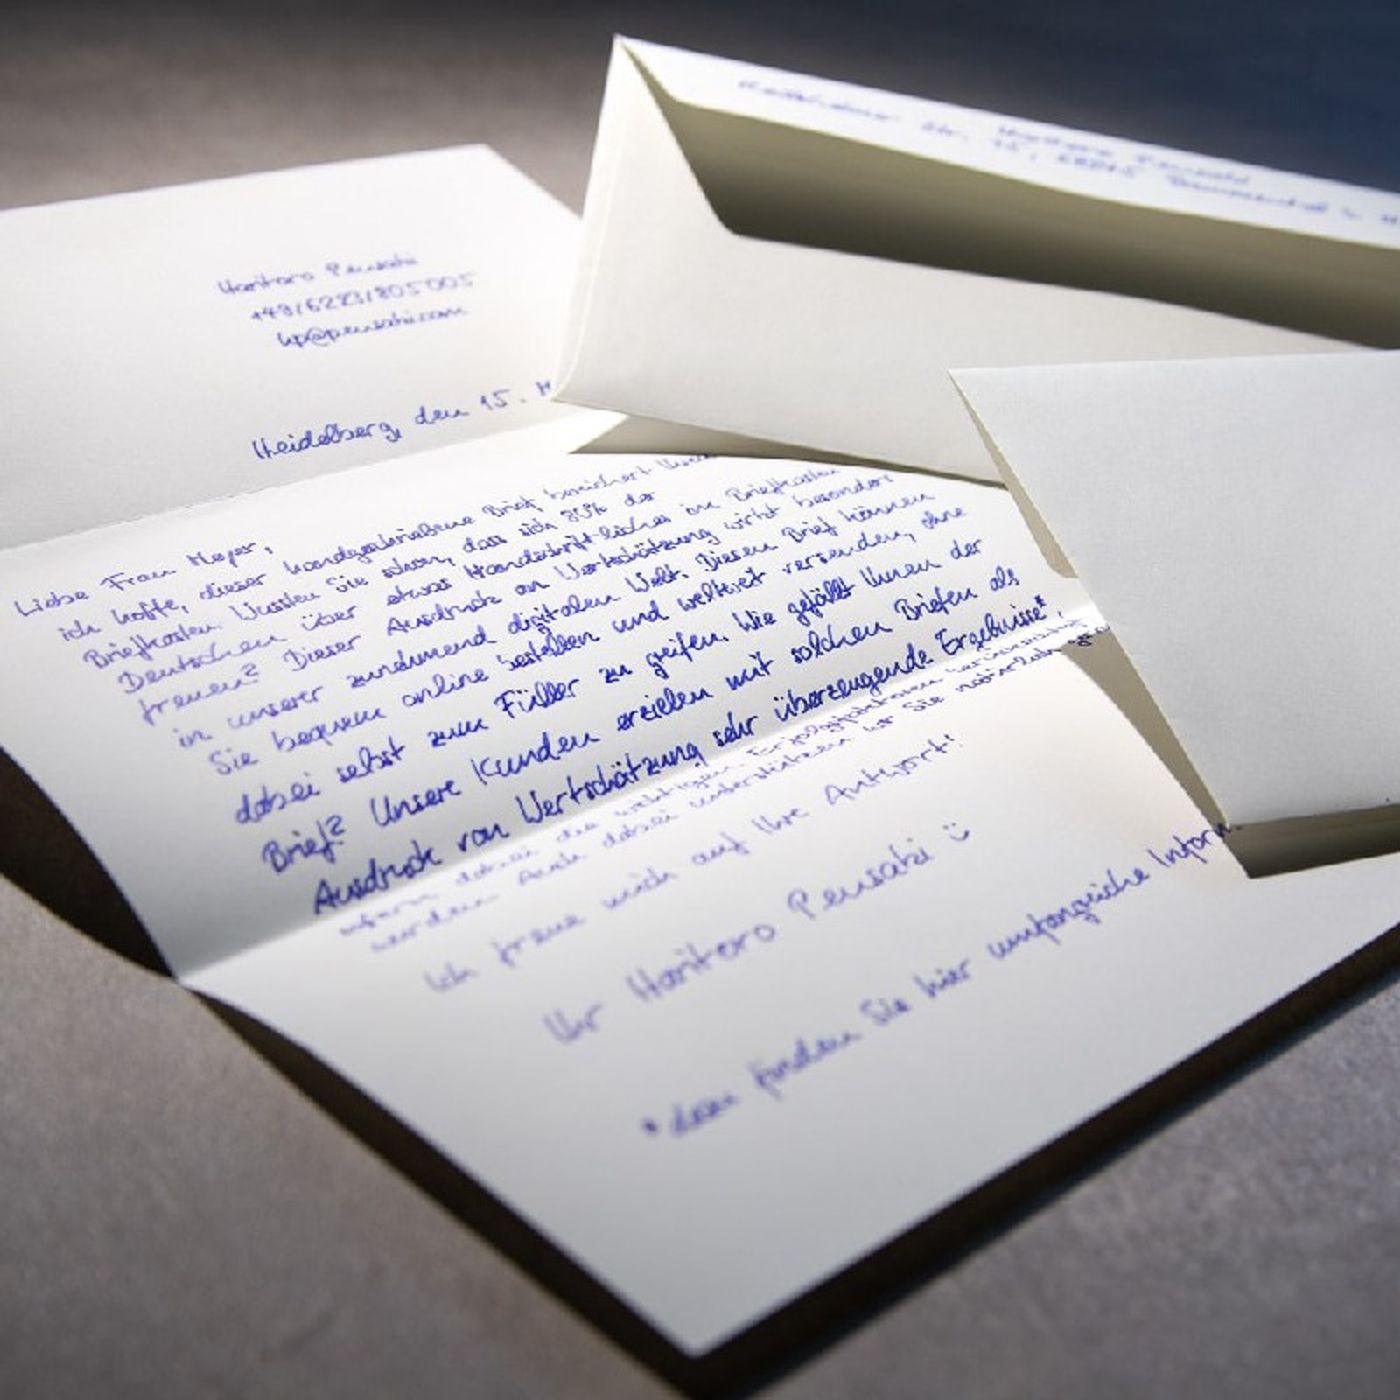 Haritero Pensaki
+49/6223/805005
hp@pensaki.com
Heidelberg, den 15.
Liebe Frau Meyer,
ich hoffe, dieser handgeschriebene Brief bereichert Ihren
Briefkasten. Wussten Sie schon, dass sich 80% der
Deutschen über etwas Handschriftliches im Briefkasten
freuen? Dieser Ausdruck an Wertschätzung wirkt besonders
in unserer zunehmend digitalen Welt. Diesen Brief können
Sie bequem online bestellen und weltweit versenden, ohne
dabei selbst zum Füller zu greifen. Wie gefällt Ihnen der
Brief? Unsere Kunden erzielen mit solchen Briefen als
Ausdruck von Wertschätzung sehr überzeugende Ergebnisse*,
sofern dabei die wichtigen Erfolgsfaktoren
werden. Auch dabei unterstützen wir Sie natürlich
Ich freue mich auf Ihre Antwort!
Ihr Haritero Pensaki :)
*dazu finden Sie hier umfangreiche Inform
Haritero Pensaki
Str.